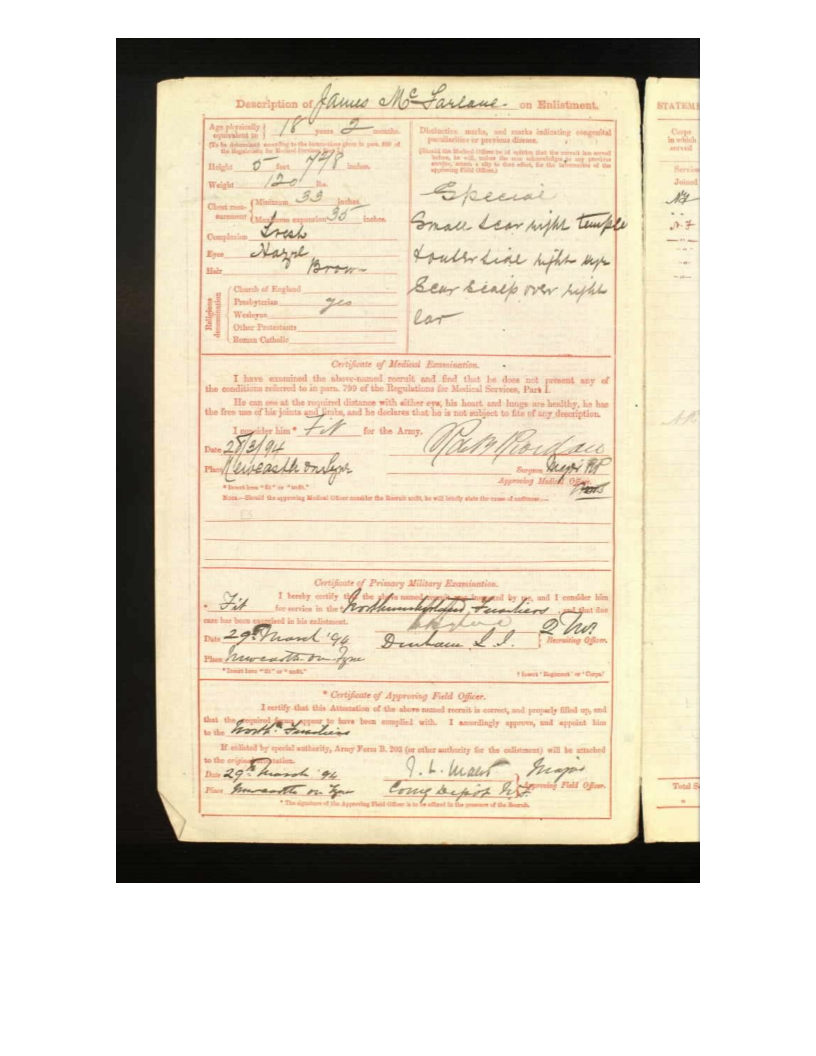 Description of James McFarlane on Enlistment.
Age physically equivalent to 18 years 2 months.
(To be determined according to the instructions given in para. of the Regulations for
Height 5 feet 7 4/8 inches.
Weight 120 lbs.
Chest measurement Minimum 33 inches.
Maximum expansion 35 inches.
Complexion Fresh
Eyes Hazel
Hair Brown
Religious denomination
Church of England
Presbyterian yes
Wesleyan
Other Protestants
Roman Catholic
Distinctive marks, and marks indicating congenital
peculiarities or previous disease.
(Should the Medical Officer be of opinion that the recruit has served
before, he will, unless the man acknowledges to any previous
service, attach a slip to that effect, for the information of the
approving Field Officer.)
Special
Small scar right temple
& outer side right
Scar Scalp over right
ear
Certificate of Medical Examination.
I have examined the above-named recruit and find that he does not present any of
the conditions referred to in para. 799 of the Regulations for Medical Services, Part I.
He can see at the required distance with either eye, his heart and lungs are healthy, he has
the free use of his joints and limbs, and he declares that he is not subject to fits of any description.
I consider him * Fit for the Army.
Date 28/3/94
Place Newcastle on Tyne
Surgeon Major
Approving Medical Officer.
* Insert here "fit" or "unfit."
NOTE.—Should the approving Medical Officer consider the Recruit unfit, he will briefly state the cause of unfitness:—
Certificate of Primary Military Examination.
I hereby certify that the above named recruit was inspected by me, and I consider him
* Fit for service in the † Northumberland Fusiliers and that due
care has been exercised in his enlistment.
Date 29th March '94 Durham L.I.
Recruiting Officer.
Place Newcastle-on-Tyne
* Insert here "fit" or "unfit."
† Insert 'Regiment' or 'Corps.'
* Certificate of Approving Field Officer.
I certify that this Attestation of the above named recruit is correct, and properly filled up, and
that the required forms appear to have been complied with. I accordingly approve, and appoint him
to the North'd Fusiliers
If enlisted by special authority, Army Form B. 203 (or other authority for the enlistment) will be attached
to the original attestation.
Date 29th March '94 Major
Place Newcastle on Tyne Comg Depot N.F. Approving Field Officer.
* The signature of the Approving Field Officer is to be affixed in the presence of the Recruit.
STATEM
Corps
in which
served
Service
Joined
N.F
Total Se